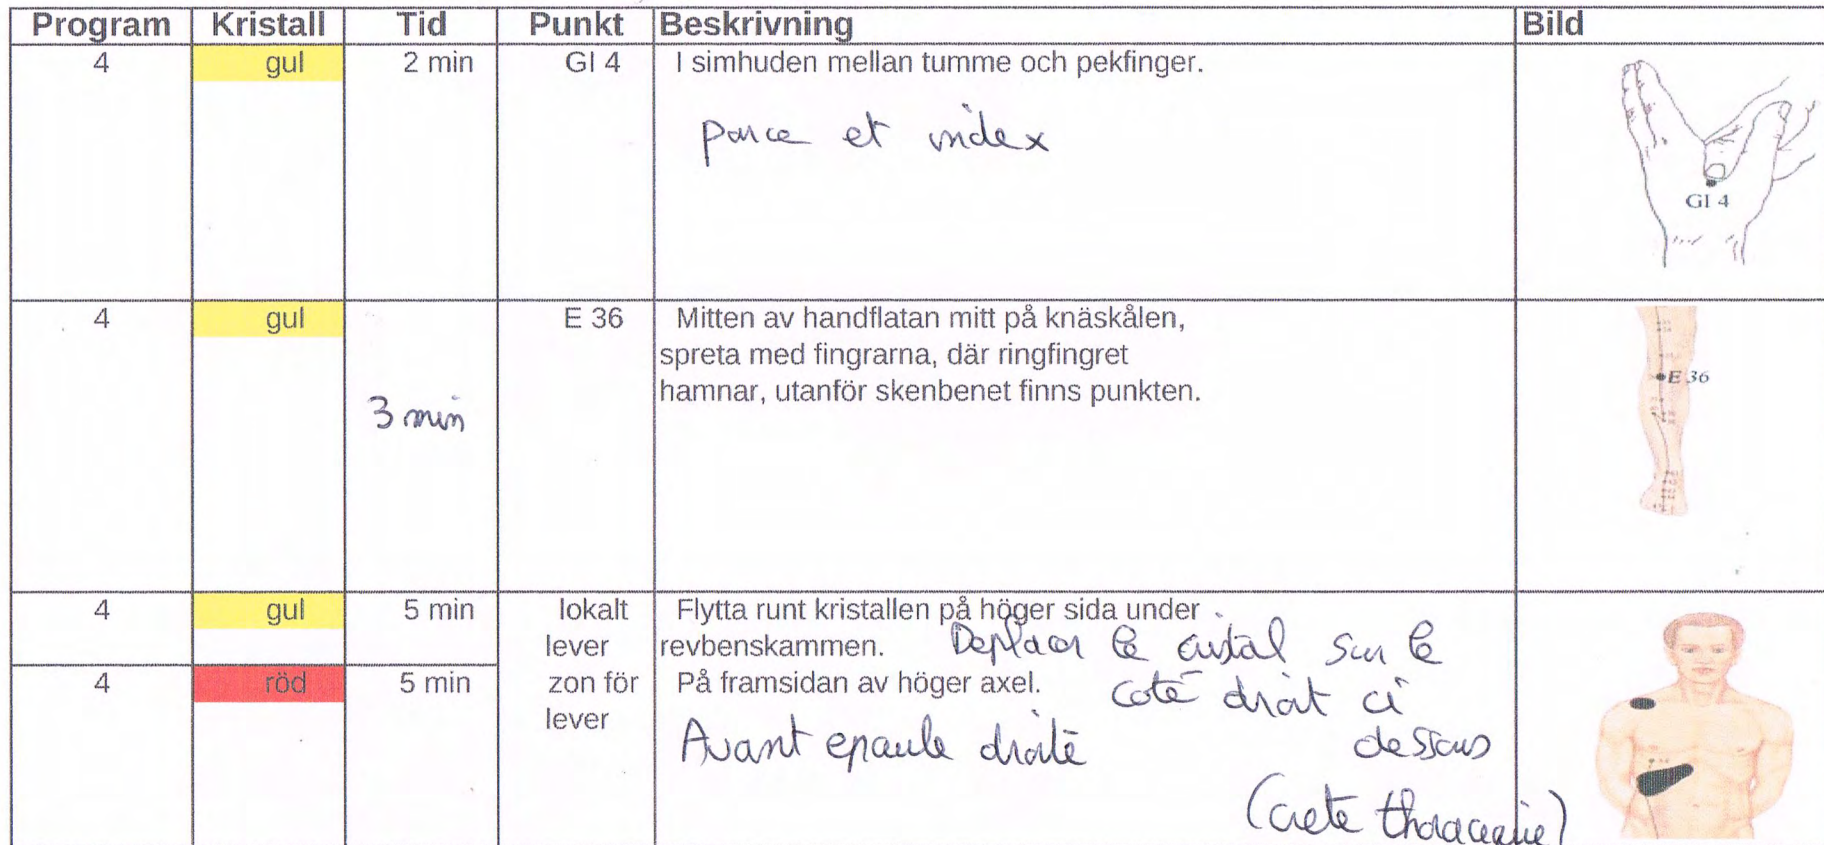 Program Kristall Tid Punkt Beskrivning Bild
4 gul 2 min GI 4 I simhuden mellan tumme och pekfinger.
et index
GI 4
4 gul E 36 Mitten av handflatan mitt på knäskålen,
spreta med fingrarna, där ringfingret
hamnar, utanför skenbenet finns punkten.
3 min
E 36
4 gul 5 min lokalt Flytta runt kristallen på höger sida under
lever revbenskammen.
Deplacer le cristal sur le
coté droit ci
dessous
4 röd 5 min zon för På framsidan av höger axel.
lever
Avant epaule droite
(crete